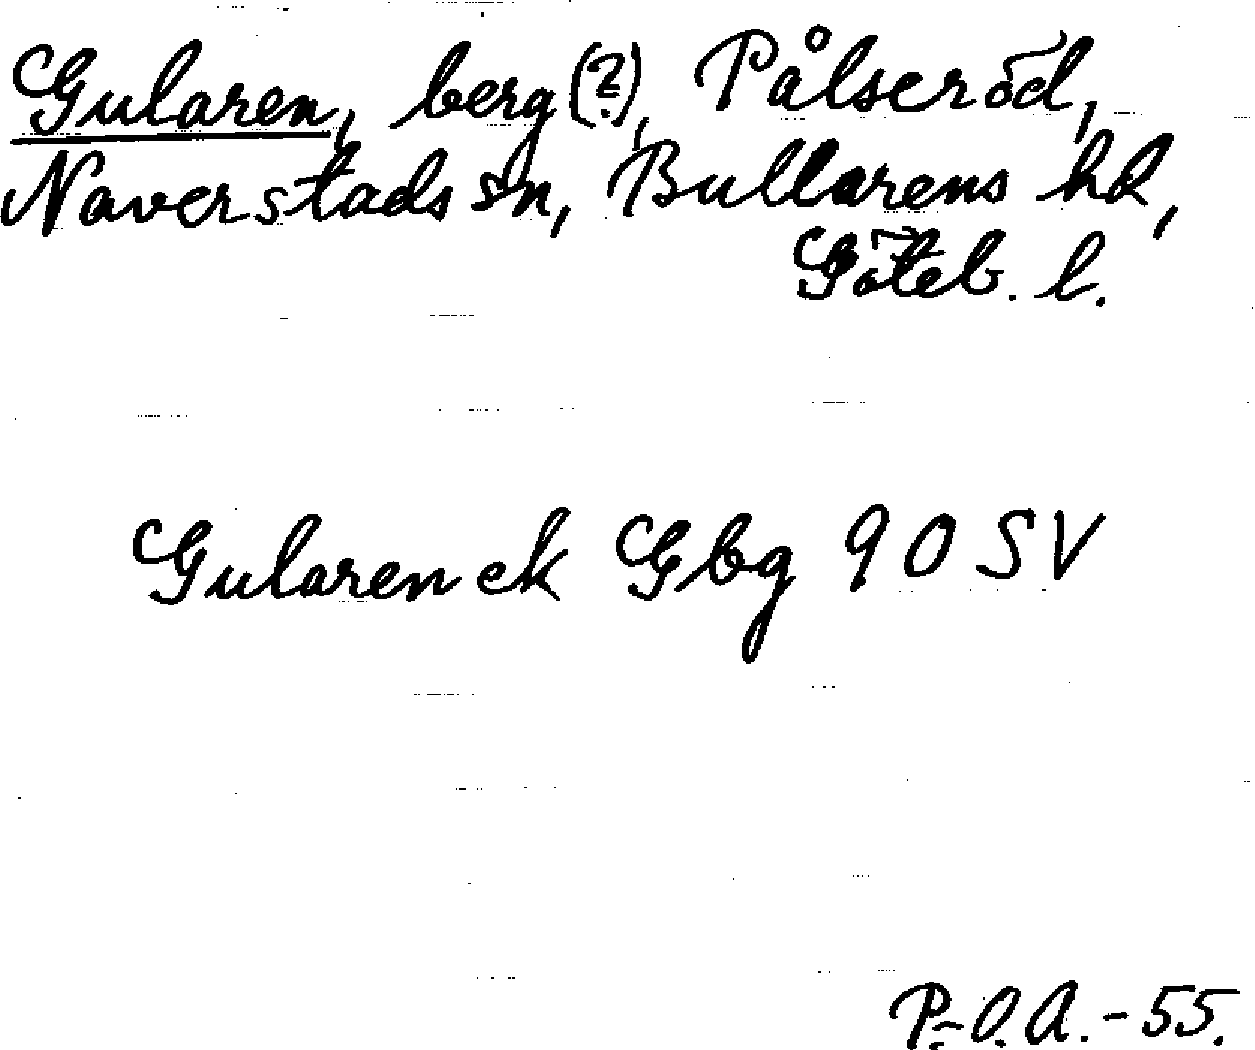 Gularen, berg(?), Pålseröd,
Naverstads sn, Bullarens hd,
Göteb. l.
Gularen ek Gbg 90 SV
P.-O.A.-55.